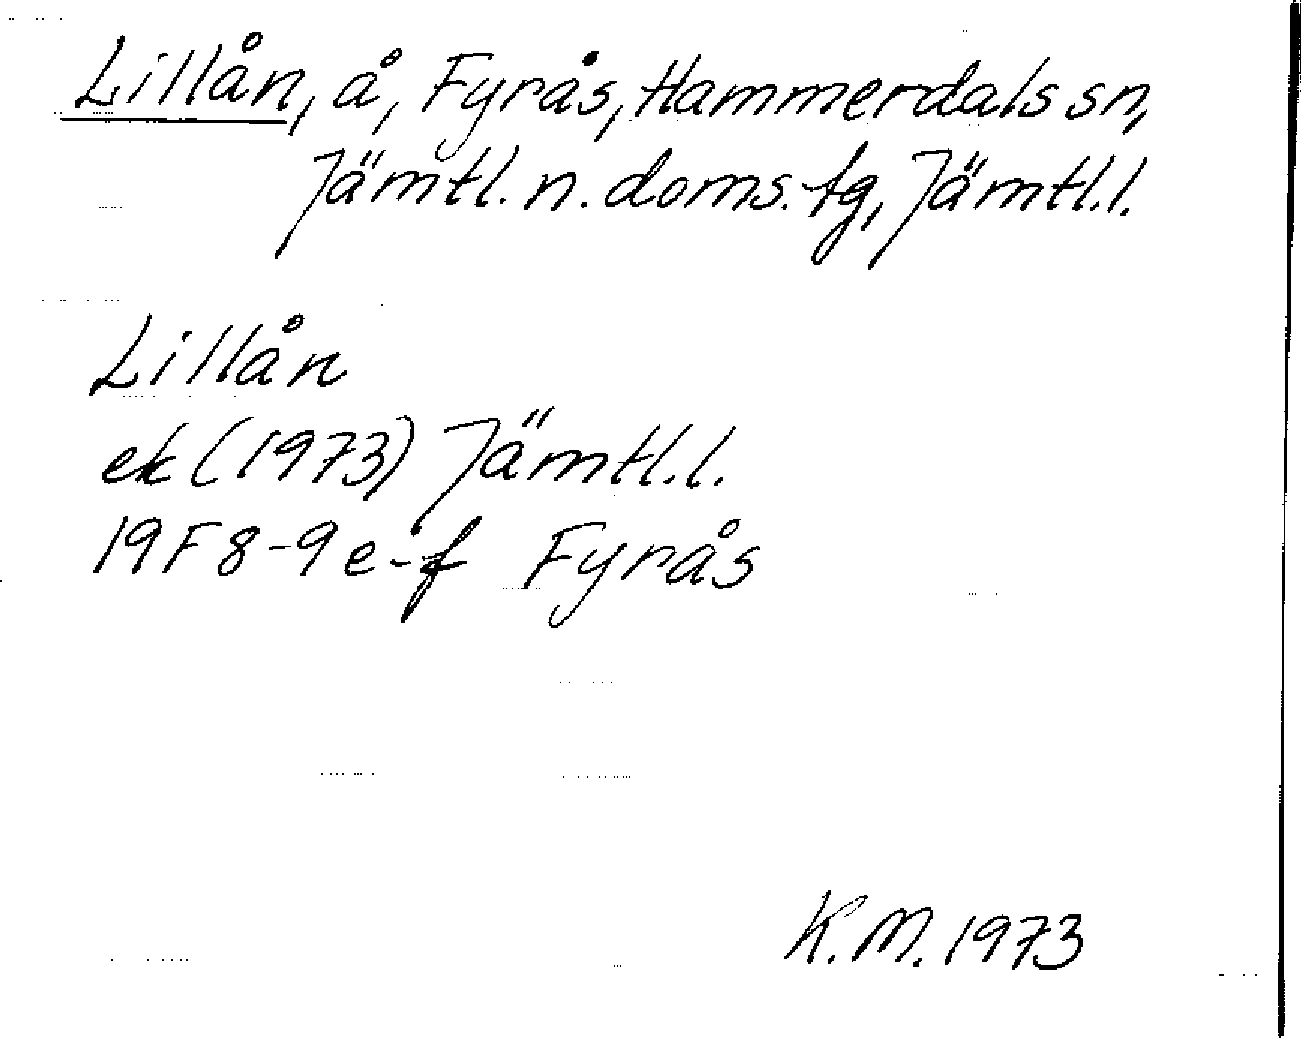 Lillån, å, Fyrås, Hammerdals sn,
Jämtl. n. doms. tg, Jämtl.l.
Lillån
ek (1973) Jämtl.l.
19F 8-9 e-f Fyrås
K.M. 1973